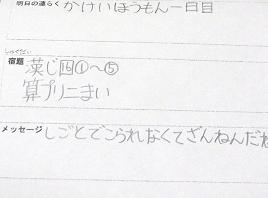 明日の連らく
かけいほうもん一日目
しゅくだい
宿題
漢じ回①〜⑤
算プリ二まい
メッセージ
しごとでこられなくてざんねんだね